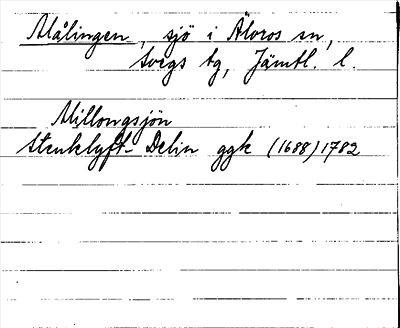 Målingen, sjö i Älvros sn,
Svegs tg, Jämtl. l.
Millongsjön
Stenklyft- Delin ggk (1688) 1782